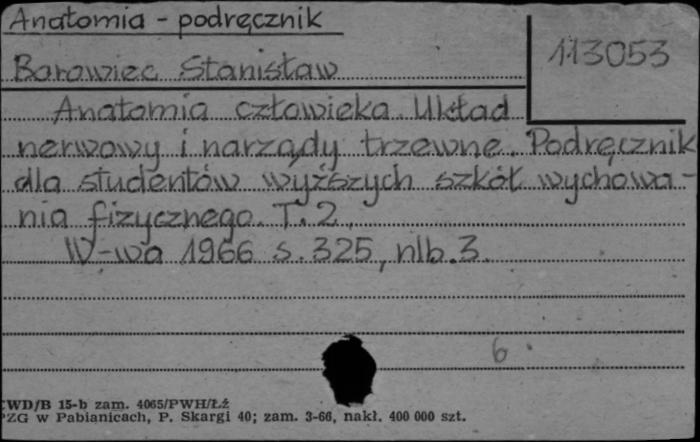 Anatomia - podręcznik
113053
Barowiec Stanisław
Anatomia człowieka. Układ
nerwowy i narządy trzewne. Podręcznik
dla studentów wyższych szkół wychowa-
nia fizycznego. T. 2.
W-wa 1966 s. 325, nlb. 3.
6
WD/B 15-b zam. 4065/PWH/Łź
PZG w Pabianicach, P. Skargi 40; zam. 3-66, nakł. 400 000 szt.